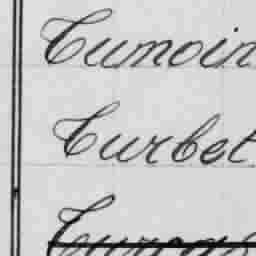 Tumoin
Turbet